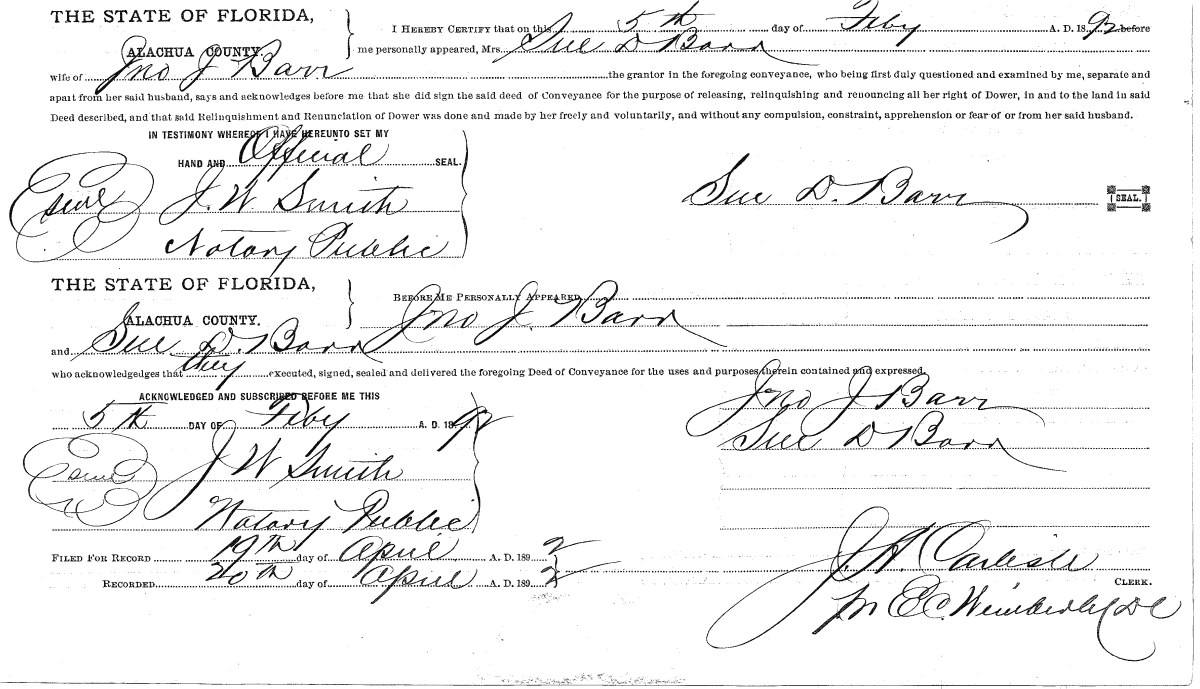 THE STATE OF FLORIDA,
ALACHUA COUNTY.
I HEREBY CERTIFY that on this 5th day of Feby A. D. 1892 before
me personally appeared, Mrs. Sue D Barr
wife of Jno J Barr the grantor in the foregoing conveyance, who being first duly questioned and examined by me, separate and
apart from her said husband, says and acknowledges before me that she did sign the said deed of Conveyance for the purpose of releasing, relinquishing and renouncing all her right of Dower, in and to the land in said
Deed described, and that said Relinquishment and Renunciation of Dower was done and made by her freely and voluntarily, and without any compulsion, constraint, apprehension or fear of or from her said husband.
IN TESTIMONY WHEREOF I HAVE HEREUNTO SET MY
HAND AND Official SEAL.
Seal J. W Smith
Notary Public
Sue D. Barr SEAL.
THE STATE OF FLORIDA,
ALACHUA COUNTY.
BEFORE ME PERSONALLY APPEARED
Jno J. Barr
and Sue D. Barr
who acknowledgedges that they executed, signed, sealed and delivered the foregoing Deed of Conveyance for the uses and purposes therein contained and expressed.
ACKNOWLEDGED AND SUBSCRIBED BEFORE ME THIS
5th DAY OF Feby A. D. 1892
Seal J W Smith
Notary Public
Jno J Barr
Sue D Barr
FILED FOR RECORD 19th day of April A. D. 1892
RECORDED 20th day of April A. D. 1892
J. A. Carlisle CLERK.
E C Wimberly D C